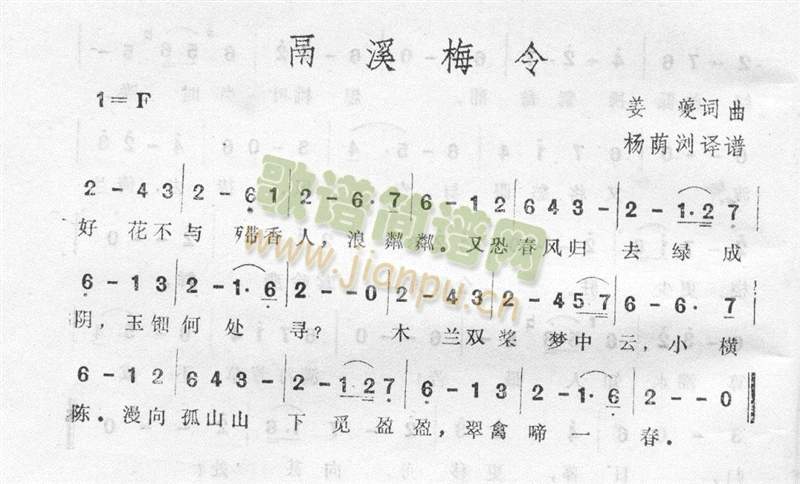 鬲溪梅令
1=F
姜夔词曲
杨荫浏译谱
2 - 4 3 | 2 - 6 1 | 2 - 6 · 7 | 6 - 1 2 | 6 4 3 - | 2 - 1 · 2 7 |
好花不与殢香人,浪粼粼。又恐春风归去绿成
6 - 1 3 | 2 - 1 · 6 | 2 - - 0 | 2 - 4 3 | 2 - 4 5 7 | 6 - 6 · 7 |
阴,玉钿何处寻?木兰双桨梦中云,小横
6 - 1 2 | 6 4 3 - | 2 - 1 2 7 | 6 - 1 3 | 2 - 1 · 6 | 2 - - 0 ‖
陈。漫向孤山山下觅盈盈,翠禽啼一春。
歌谱简谱网
www.jianpu.cn